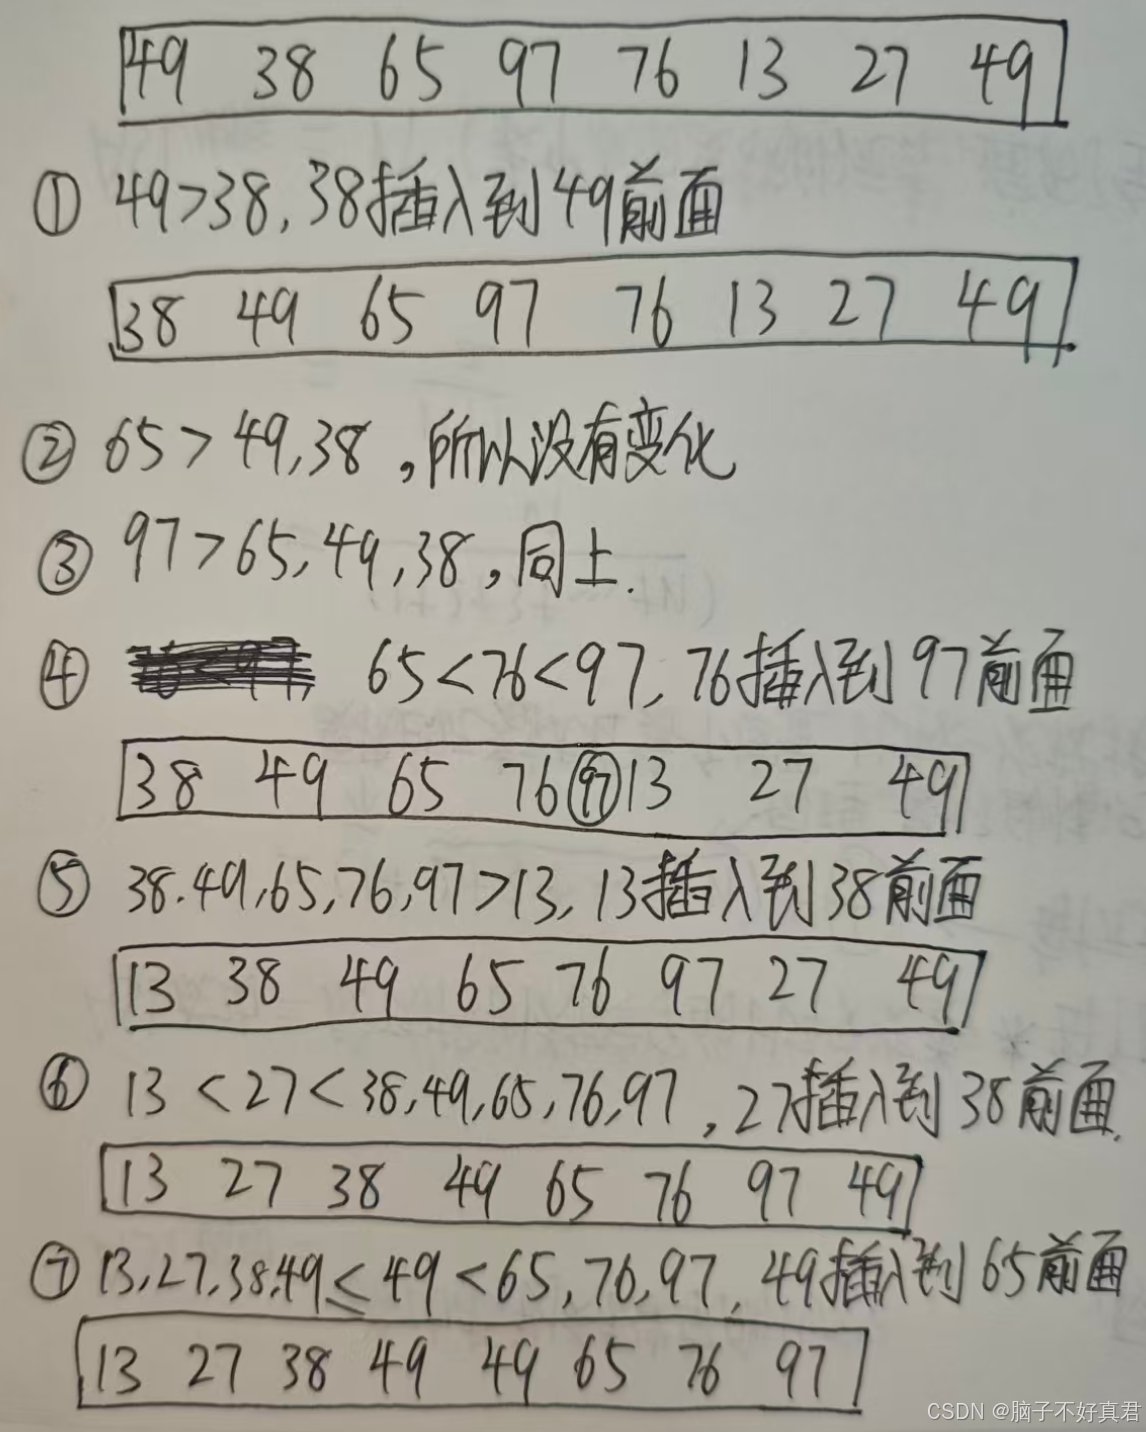 49 38 65 97 76 13 27 49
① 49>38, 38插入到49前面
38 49 65 97 76 13 27 49
② 65>49,38,所以没有变化
③ 97>65,49,38,同上.
④ 65<76<97, 76插入到97前面
38 49 65 76 97 13 27 49
⑤ 38.49,65,76,97>13, 13插入到38前面
13 38 49 65 76 97 27 49
⑥ 13<27<38,49,65,76,97,27插入到38前面.
13 27 38 49 65 76 97 49
⑦ 13,27,38,49≤49<65,76,97, 49插入到65前面
13 27 38 49 49 65 76 97
CSDN @脑子不好真君